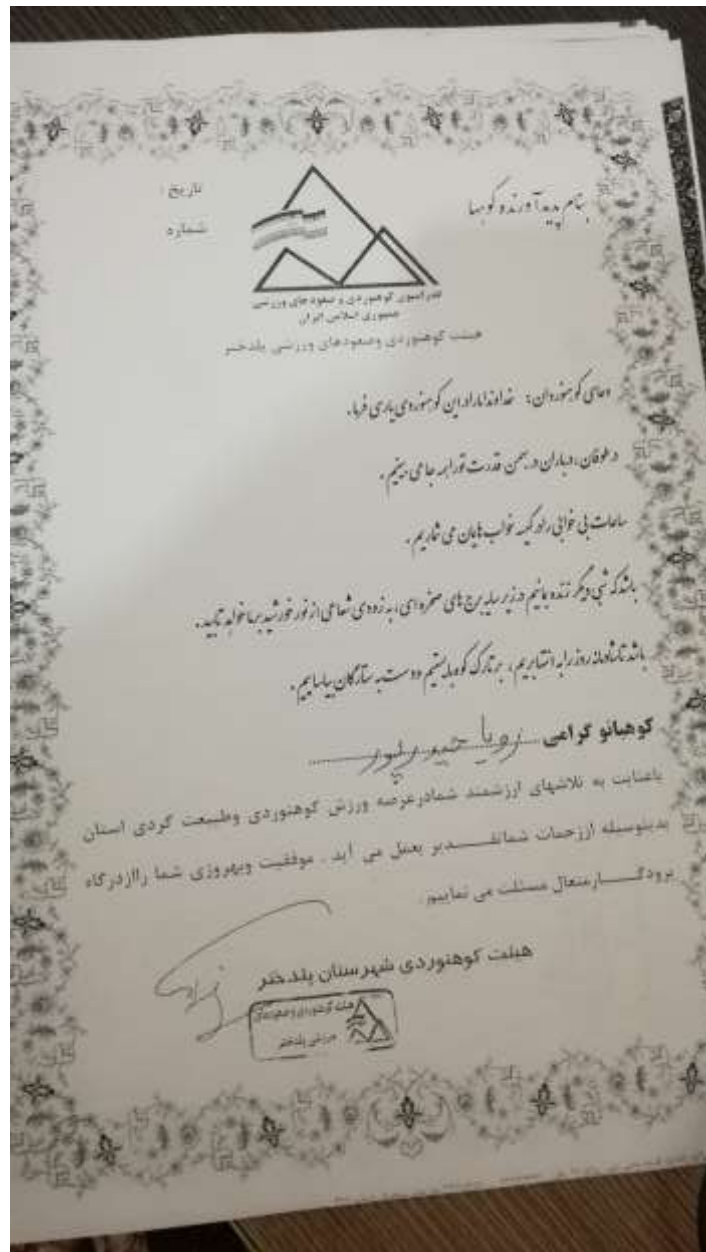 بنام پدیدآورنده کوهها
تاریخ :
شماره
فدراسیون کوهنوردی و صعودهای ورزشی
جمهوری اسلامی ایران
هیئت کوهنوردی وصعودهای ورزشی پلدختر
دعای کوهنوردان : خداوندا مارا در این کوهنوردی یاری فرما .
در طوفان ، در باران در بهمن قدرت تو را همه جا می بینیم .
ساعات بی خوابی را در کیسه خواب هایمان می شماریم .
باشد که شبی دیگر زنده بمانیم در زیر سایه برج های صخره ای ، به زودی شعاعی از نور خورشید بر ما خواهد تابید .
باشد تا شادمانه روز را به انتها بریم ، بر تارک کوه بایستیم و دست به ستارگان بساییم .
کوهبانو گرامی رویا حیدرپور
باعنایت به تلاشهای ارزشمند شمادرعرصه ورزش کوهنوردی وطبیعت گردی استان
بدینوسیله اززحمات شماتقـــدیر بعمل می آید . موفقیت وبهروزی شما راازدرگاه
پرودگـــارمتعال مسئلت می نماییم
هیئت کوهنوردی شهرستان پلدختر
هیئت کوهنوردی و صعودهای
ورزشی پلدختر